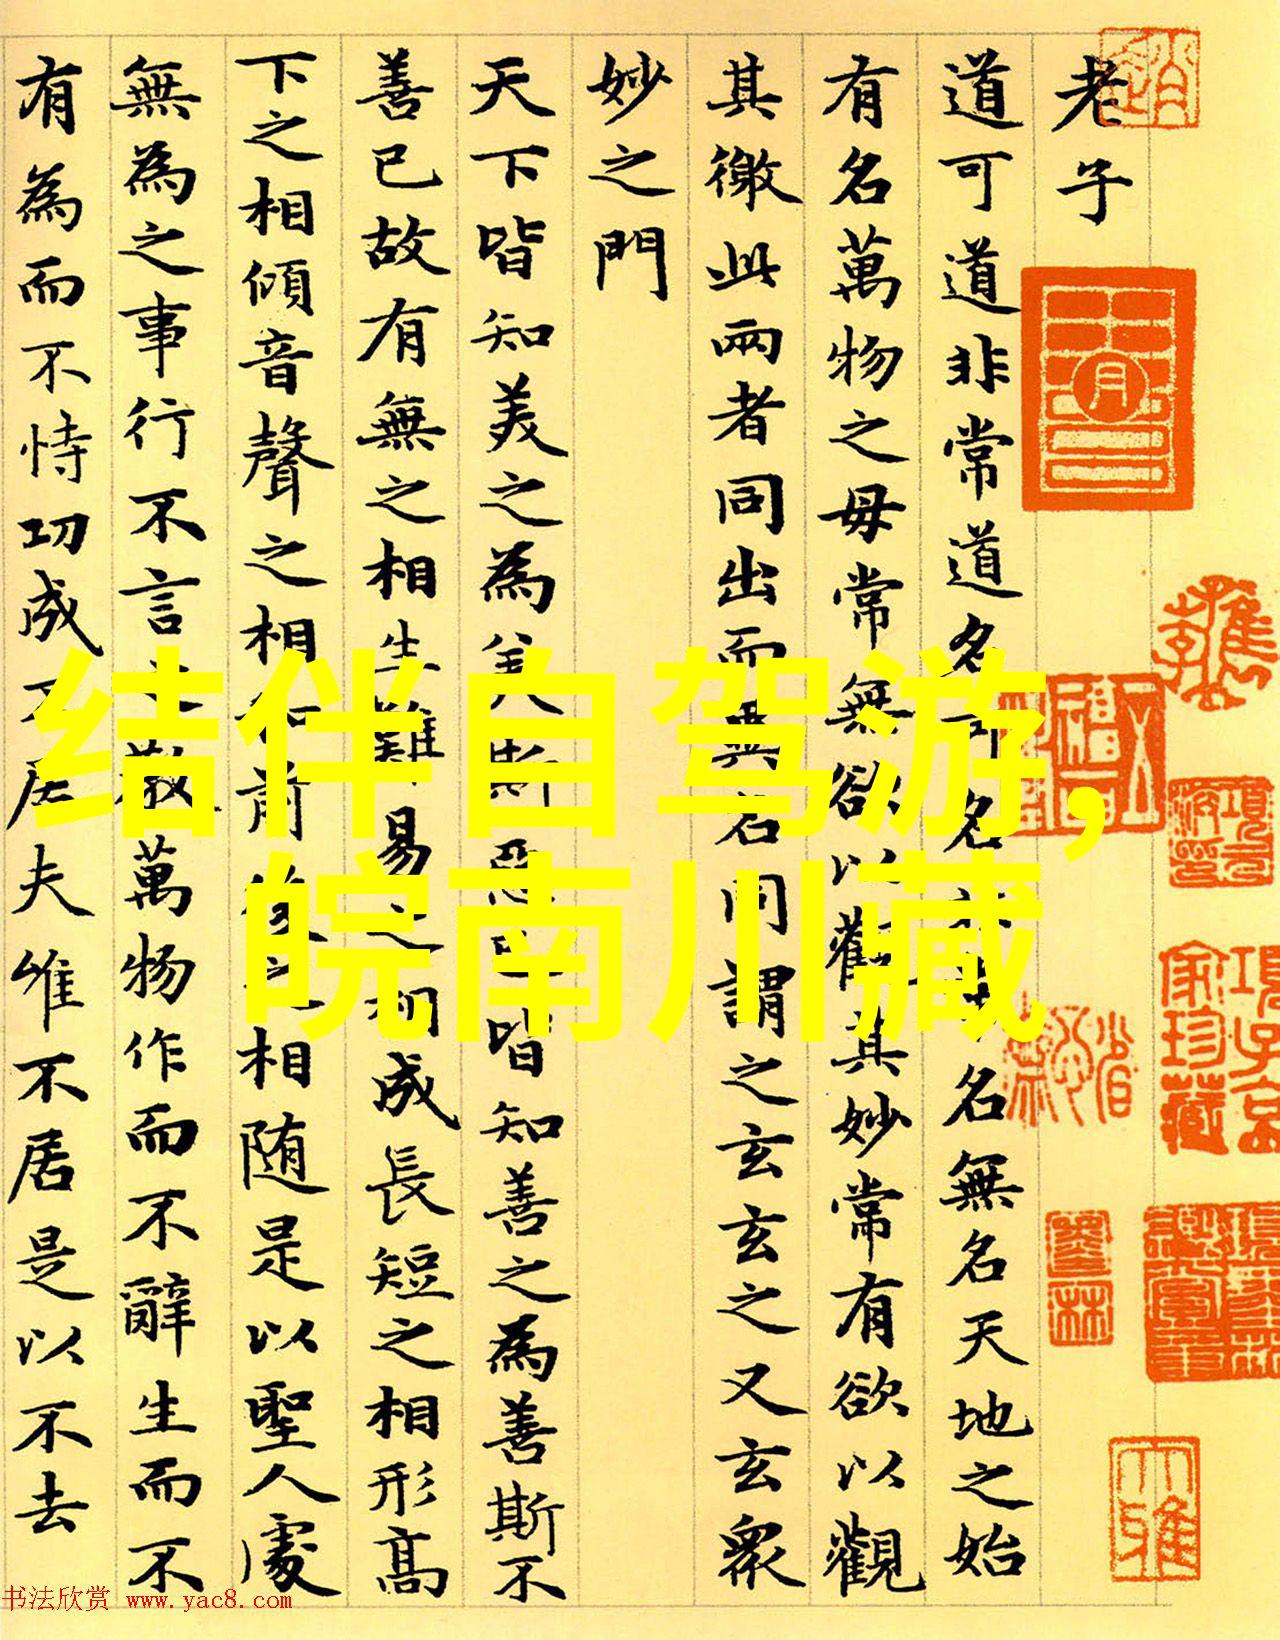 老子
道可道非常道名可名非常名無名天地之始
有名萬物之母常無欲以觀其妙常有欲以觀
其徼此兩者同出而異名同謂之玄玄之又玄衆
妙之門
天下皆知美之為美斯惡已皆知善之為善斯不
善已故有無之相生難易之相成長短之相形髙
下之相傾音聲之相和前後之相随是以聖人處
無為之事行不言之教萬物作而不辭生而不
有為而不恃功成不居夫惟不居是以不去
结伴自驾游,
皖南川藏
項子京家珍藏
书法欣赏 www.yac8.com